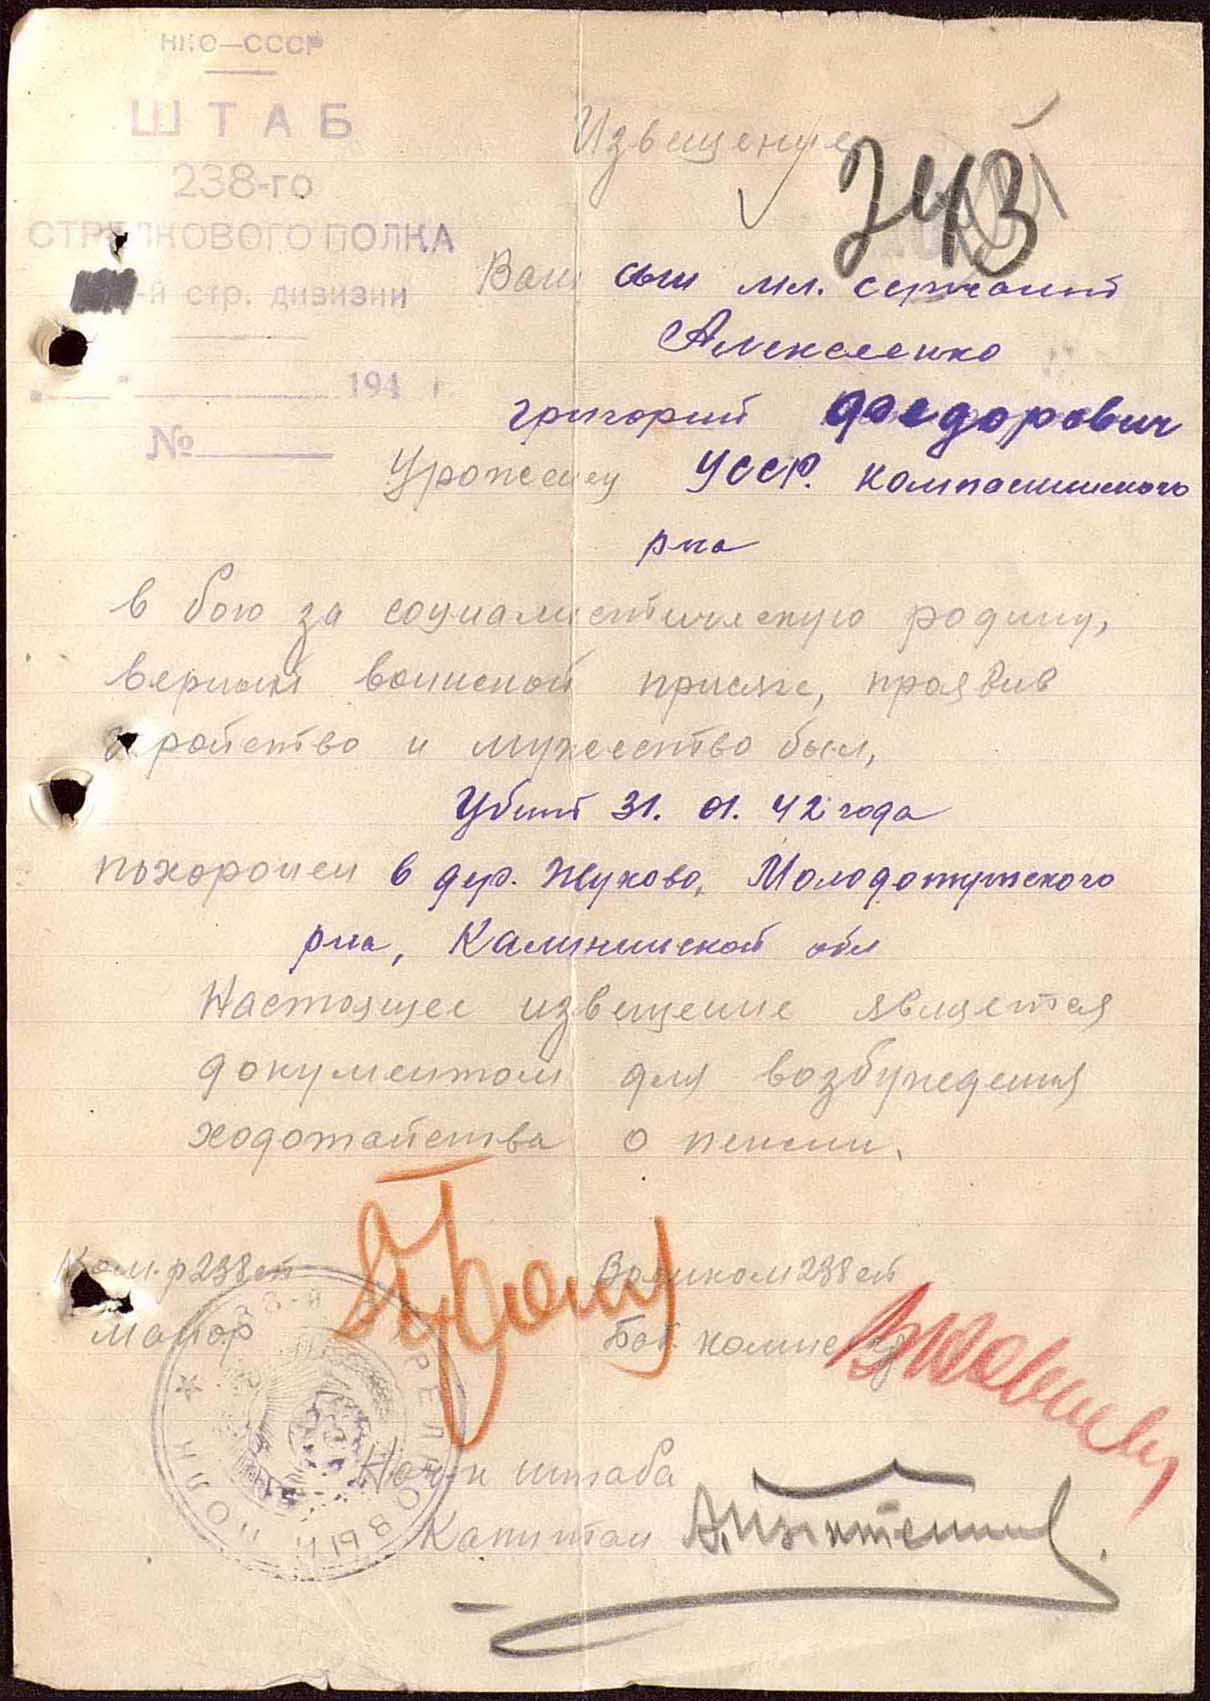 НКО—СССР
ШТАБ
238-го
СТРЕЛКОВОГО ПОЛКА
-й стр. дивизии
194
№
Извещение
243
Ваш сын мл. сержант
Алексеенко
Григорий Федорович
Уроженец УССР.
р-на
в бою за социалистическую родину,
верный воинской присяге, проявив
геройство и мужество был,
Убит 31. 01. 42 года
похоронен в дер. Жуково, Молодотутского
р-на, Калининской обл
Настоящее извещение является
документом для возбуждения
ходотайства о пенсии.
Ком-р 238 сп
Майор
Военком 238 сп
Бат. комиссар
Нач-к штаба
Капитан
СТРЕЛКОВЫЙ ПОЛК